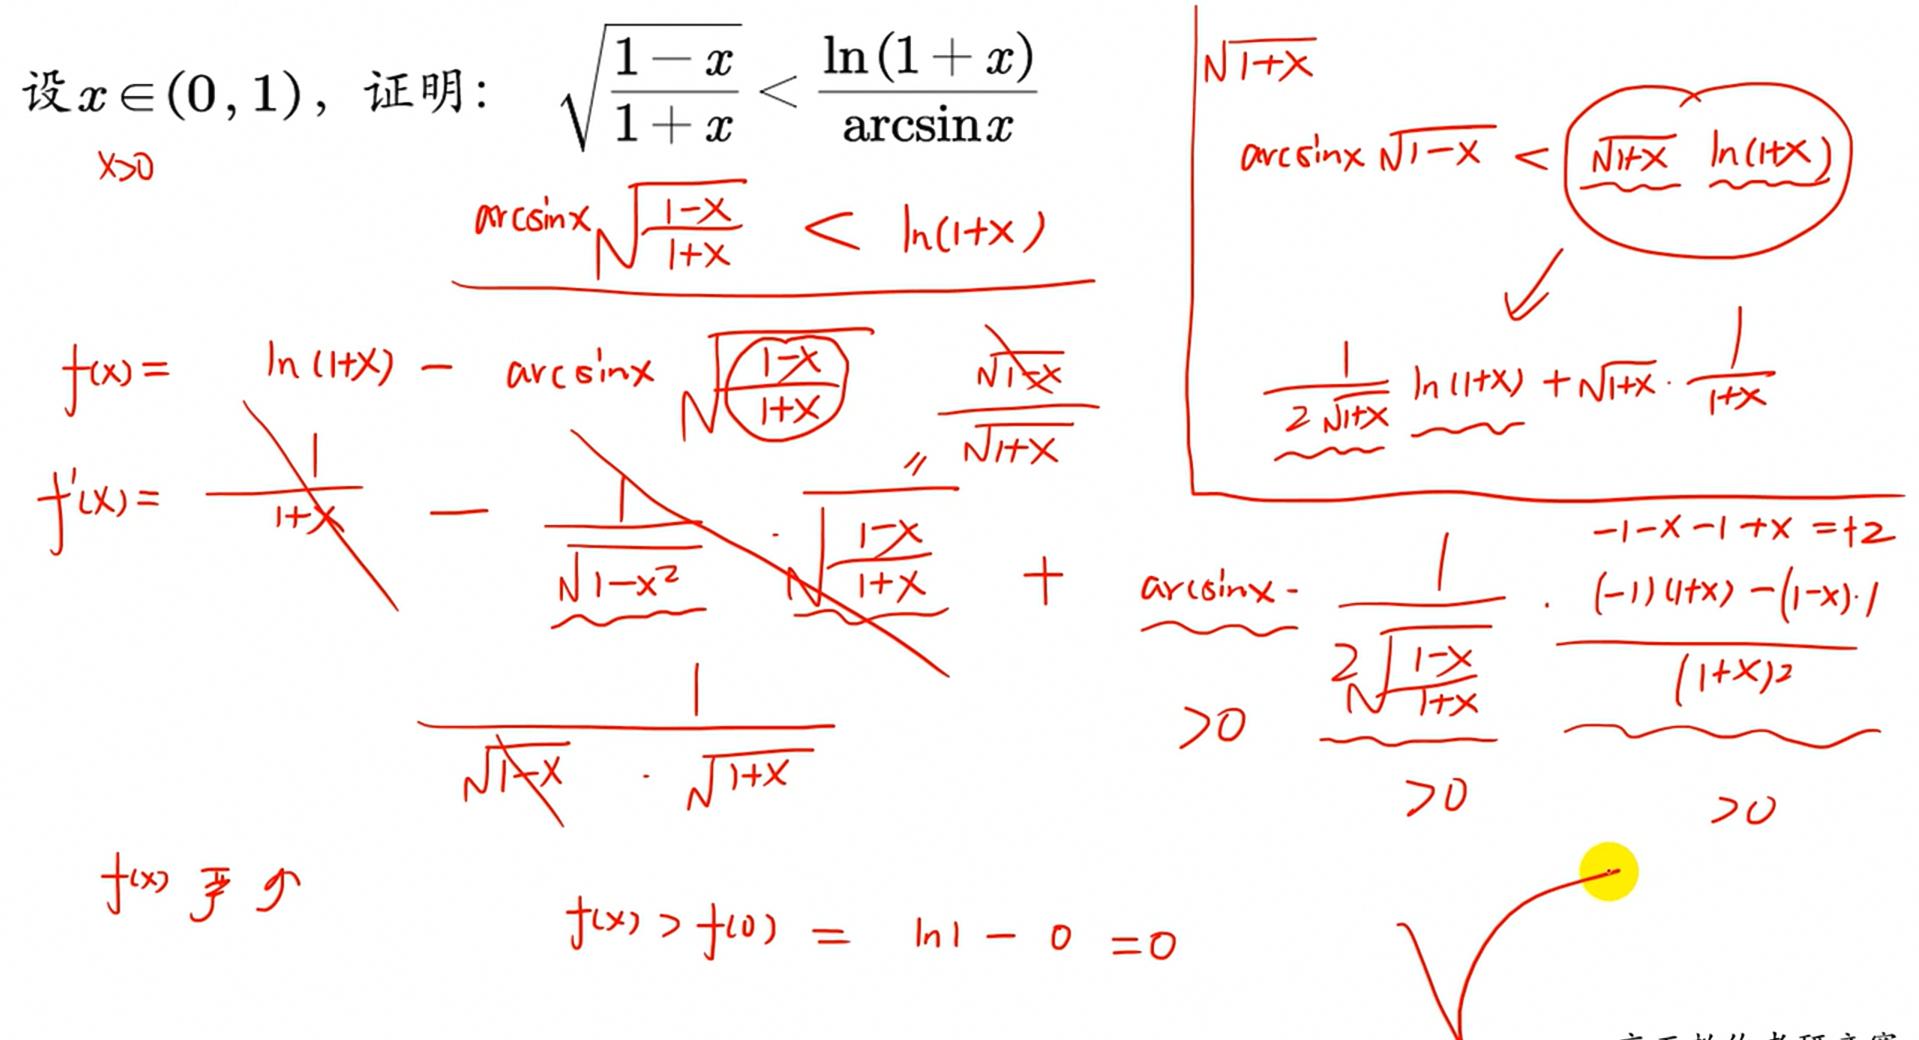 设x∈(0,1), 证明: √((1−x)/(1+x)) < ln(1+x)/arcsinx
x>0
arcsinx √((1-x)/(1+x)) < ln(1+x)
f(x) = ln(1+x) - arcsinx √((1-x)/(1+x))
√(1-x)/√(1+x)
f'(x) = 1/(1+x) - 1/√(1-x²) · √((1-x)/(1+x)) + arcsinx · 1/(2√((1-x)/(1+x))) · ((-1)(1+x) - (1-x)·1)/(1+x)²
-1-x-1+x = +2
1/(√(1-x) · √(1+x))
>0 >0 >0
f(x) 严
f(x) > f(0) = ln1 - 0 = 0
√(1+x)
arcsinx √(1-x) < √(1+x) ln(1+x)
1/(2√(1+x)) ln(1+x) + √(1+x) · 1/(1+x)